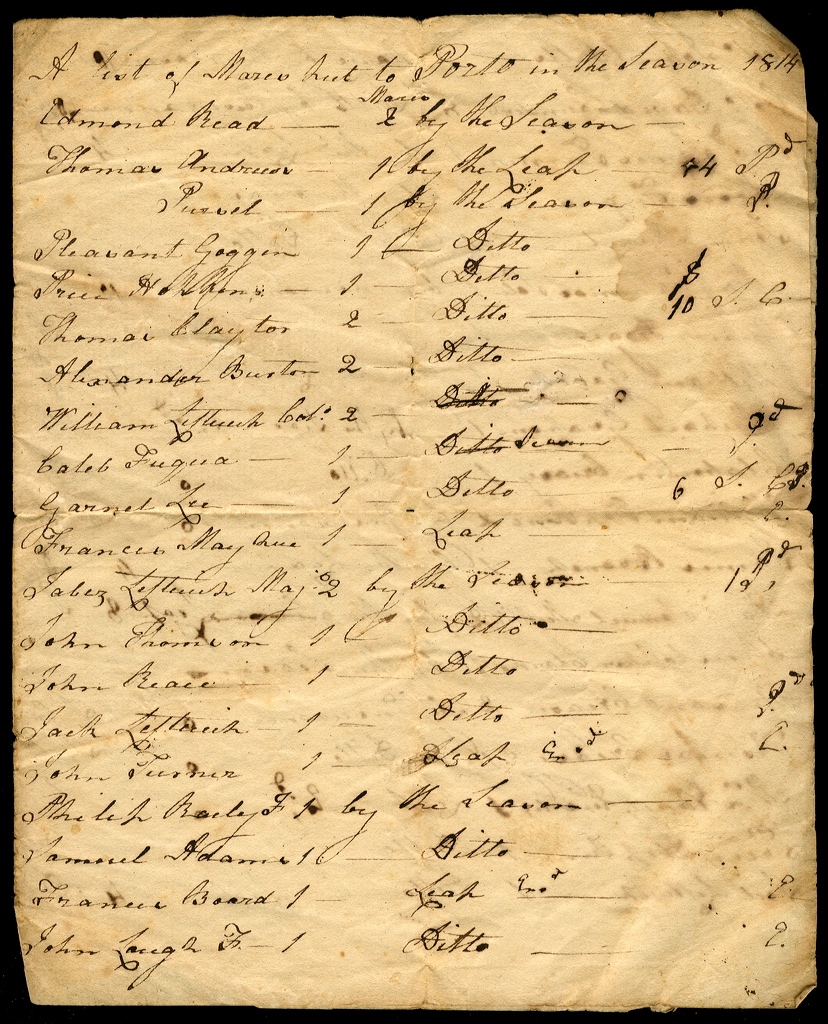 A list of Mares put to Porto in the Season 1814
Mares
Edmond Read — 2 by the Season —
Thomas Andrews — 1 by the Leap — 4 Pd
Pursel — 1 by the Season — P.
Pleasant Goggin 1 — Ditto
Price Hopkins — 1 — Ditto — $
Thomas Clayton 2 — Ditto — 10 S. C.
Alexander Burton 2 — Ditto —
William Leftwich Col. 2 — Ditto —
Caleb Fuqua 1 — Ditto Season — Pd
Garnet Lee — 1 — Ditto — 6 S.
Francis May Que 1 — Leap — E.
Jabez Leftwich Majo 2 by the Season — Pd
John Thomson 1 — Ditto —
John Reace — 1 — Ditto
Jack Leftwich — 1 — Ditto — Pd
John Turner 1 — Leap — E.
Philip Raily F 1 by the Season —
Samuel Adams 1 — Ditto —
Francis Board 1 — Leap Ensd — E.
John Laugh F — 1 Ditto — E.